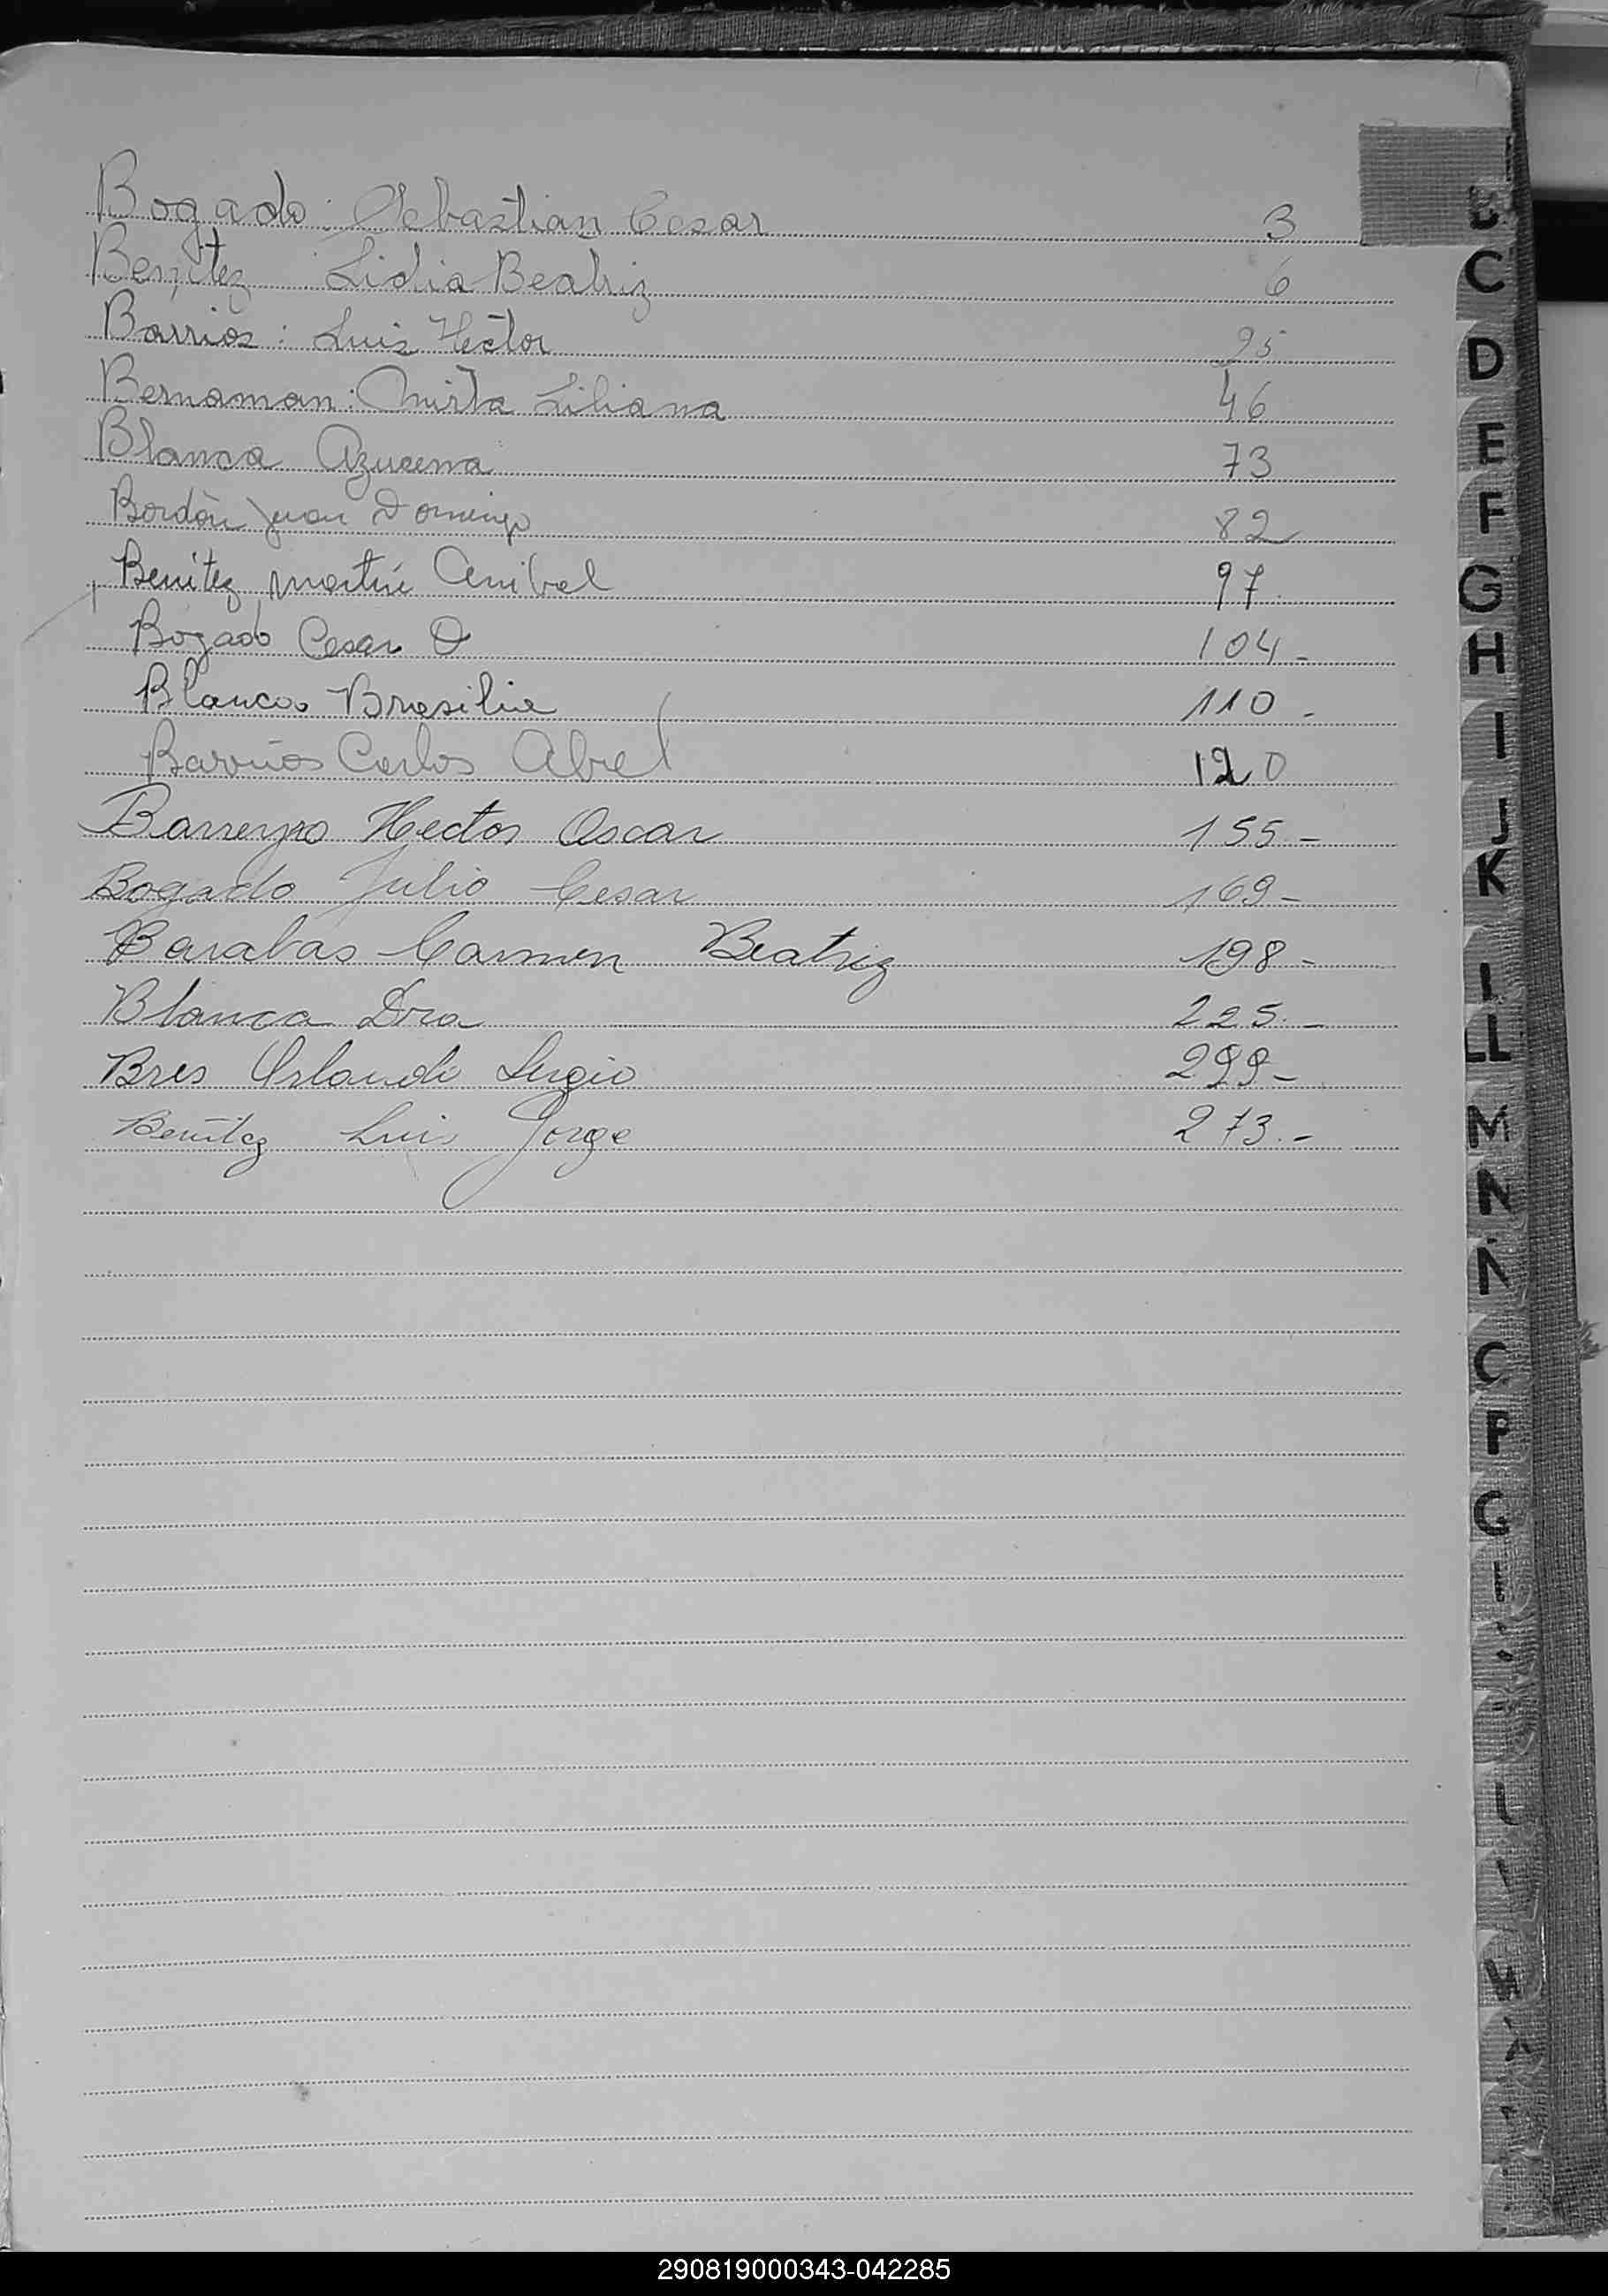 Bogado: Sebastian Cesar 3
Benitez: Lidia Beatriz 6
Barrios: Luis Hector 25
Bernaman: Mirta Liliana 46
Blanca Azucena 73
Bordón Juan Domingo 82
Benitez, Martín Anibal 97
Bogado Cesar D 104-
Blanco Brasilia 110-
Barrios Carlos Abel 120
Barreyro Hector Oscar 155.-
Bogado Julio Cesar 169-
Barabas Carmen Beatriz 198-
Blanca Dra 225.-
Bres Orlando Sergio 299-
Benitez Luis Jorge 273.-
B
C
D
E
F
G
H
I
J
K
L
LL
M
N
Ñ
O
P
Q
290819000343-042285